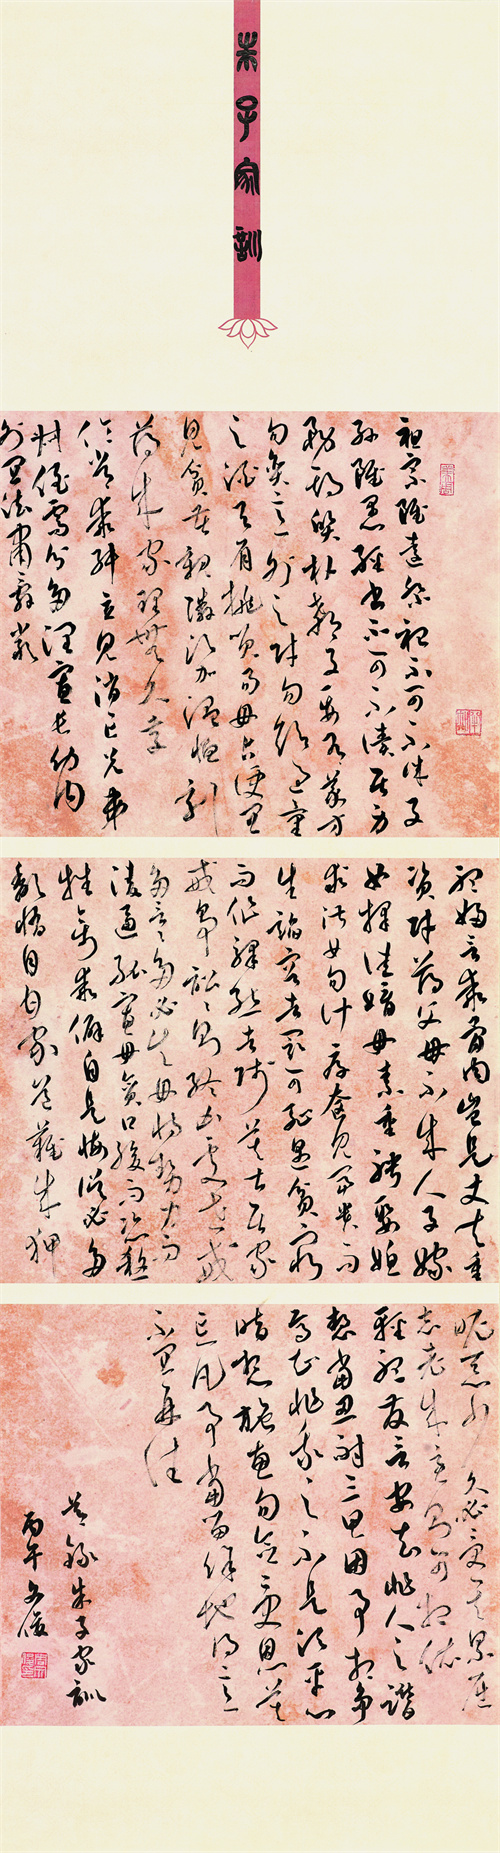 朱子家訓
祖宗雖遠祭祀不可不誠子
孫雖愚經書不可不讀居身
務期質樸教子要有義方
勿貪意外之財勿飲過量
之酒與肩挑貿易毋占便宜
見貧苦親鄰須加溫恤刻
薄成家理無久享
倫常乖舛立見消亡兄弟
叔侄需分多潤寡長幼內
外宜法肅辭嚴
聽婦言乖骨肉豈是丈夫重
資財薄父母不成人子嫁
女擇佳婿毋索重聘娶媳
求淑女勿計厚奩見富貴而
生諂容者最可恥遇貧窮
而作驕態者賤莫甚居家
戒爭訟訟則終凶處世戒
多言言多必失毋恃勢力而
凌逼孤寡毋貪口腹而恣殺
牲禽乖僻自是悔誤必多
頹惰自甘家道難成狎
昵惡少久必受其累屈
志老成急則可相依
輕聽發言安知非人之譖
愬當忍耐三思因事相爭
焉知非我之不是須平心
暗想施惠勿念受恩莫
忘凡事當留餘地得意
不宜再往
節錄朱子家訓
丙午